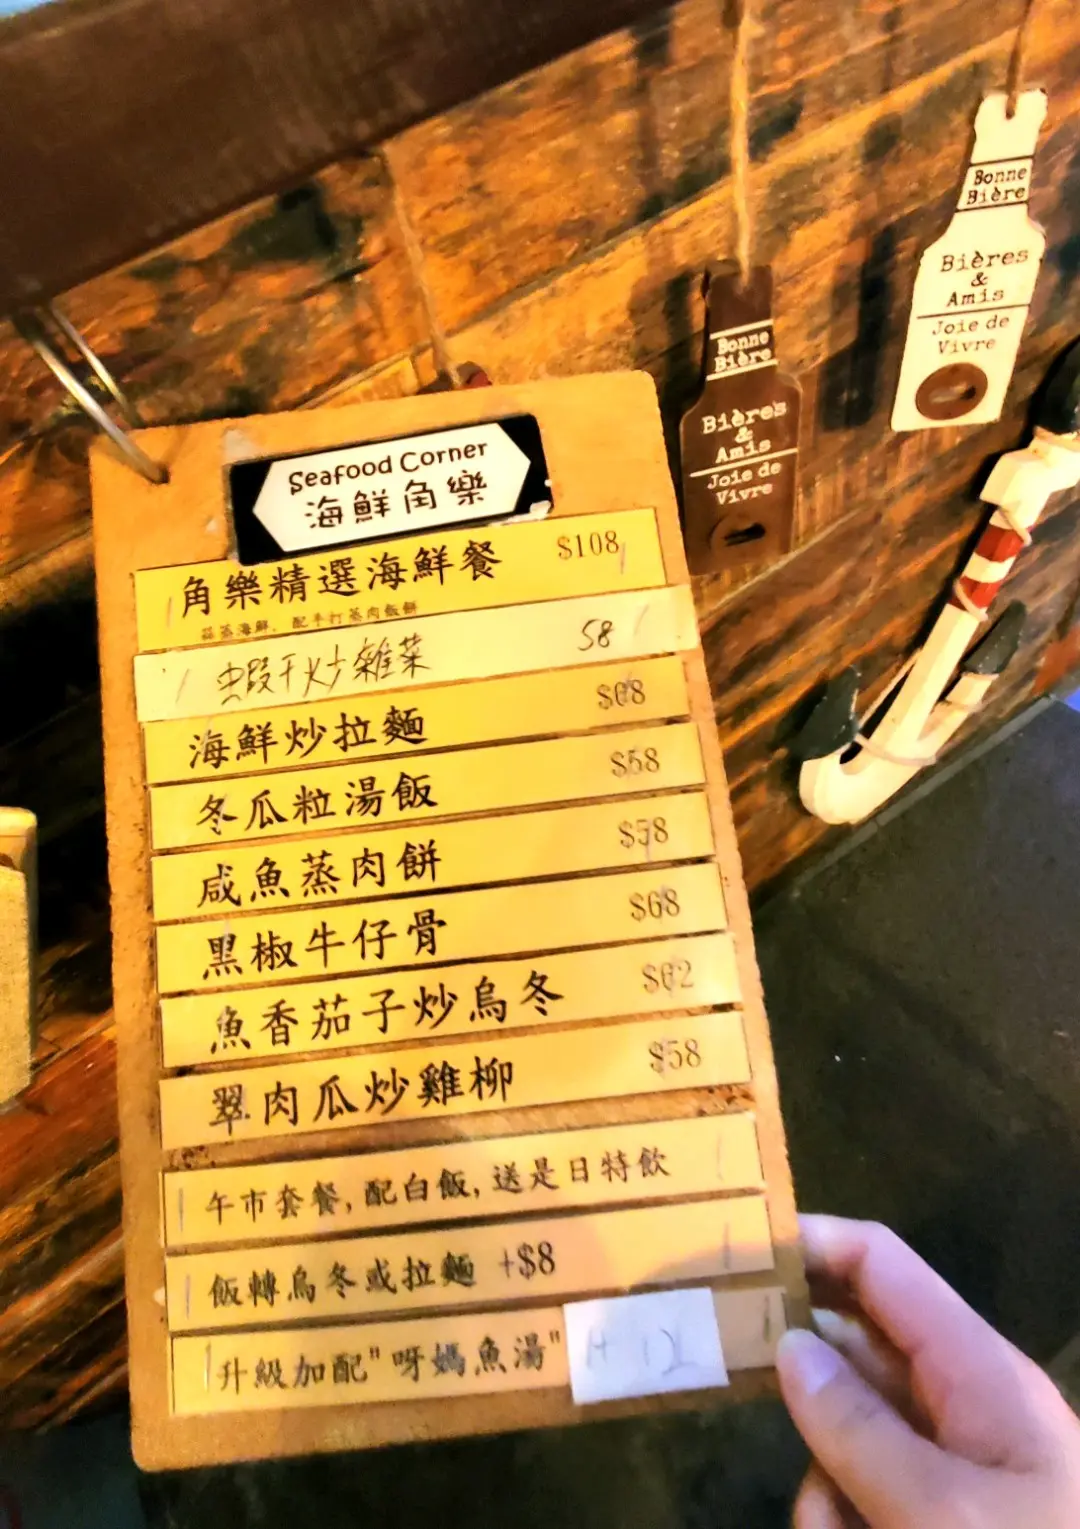 Seafood Corner
海鮮角樂
角樂精選海鮮餐 $108
蒜蒸海鮮，配手打蒸肉飯餅
蝦干炒雜菜 58
海鮮炒拉麵 $68
冬瓜粒湯飯 $58
咸魚蒸肉餅 $58
黑椒牛仔骨 $68
魚香茄子炒烏冬 $62
翠肉瓜炒雞柳 $58
午市套餐, 配白飯, 送是日特飲
飯轉烏冬或拉麵 +$8
升級加配"呀媽魚湯"
Bonne
Bière
Bières
&
Amis
Joie de
Vivre
Bonne
Bière
Bières
&
Amis
Joie de
Vivre